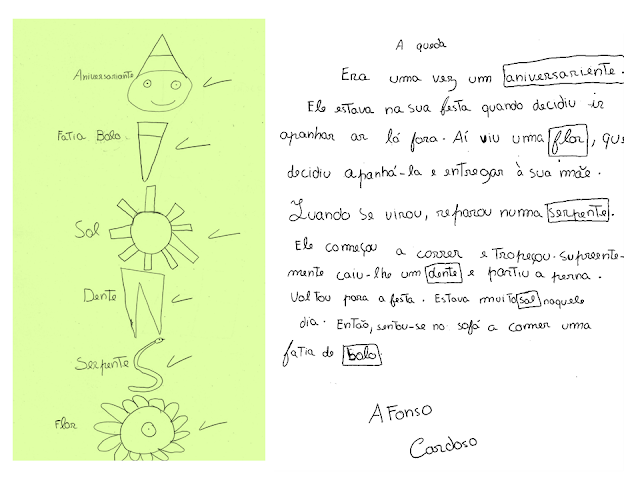 Aniversariante
Fatia Bolo.
Sol
Dente
Serpente
Flor
A queda
Era uma vez um aniversariente.
Ele estava na sua festa quando decidiu ir
apanhar ar lá fora. Aí viu uma flor, que
decidiu apanhá-la e entregar à sua mãe.
Quando se virou, reparou numa serpente.
Ele começou a correr e tropeçou. Supreente-
mente caiu-lhe um dente e partiu a perna.
Voltou para a festa. Estava muito sol naquele
dia. Então, sentou-se no sofá a comer uma
fatia de bolo.
Afonso
Cardoso